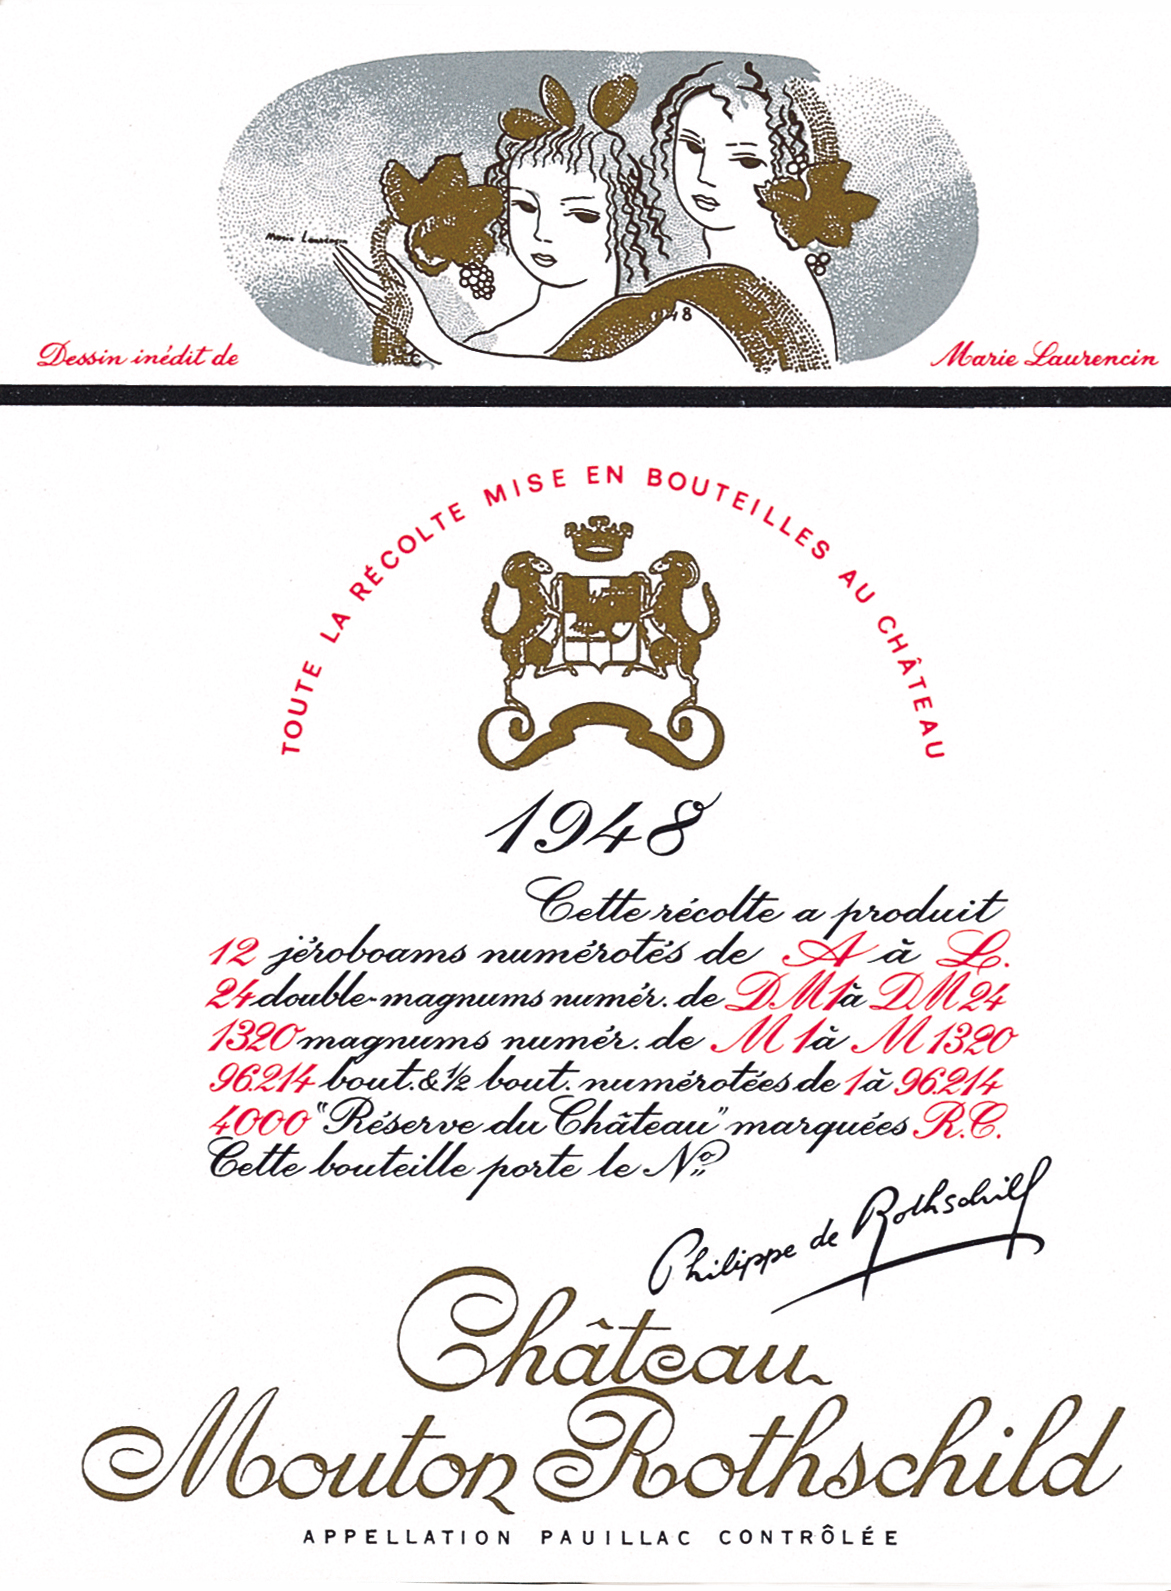 Marie Laurencin
1948
Dessin inédit de
Marie Laurencin
TOUTE LA RÉCOLTE MISE EN BOUTEILLES AU CHÂTEAU
1948
Cette récolte a produit
12 jéroboams numérotés de A à L.
24 double-magnums numér. de DM1 à DM24
1320 magnums numér. de M1 à M1320
96.214 bout. & ½ bout. numérotées de 1 à 96.214
4000 "Réserve du Château" marquées R.C.
Cette bouteille porte le Nº
Philippe de Rothschild
Château
Mouton Rothschild
APPELLATION PAUILLAC CONTRÔLÉE